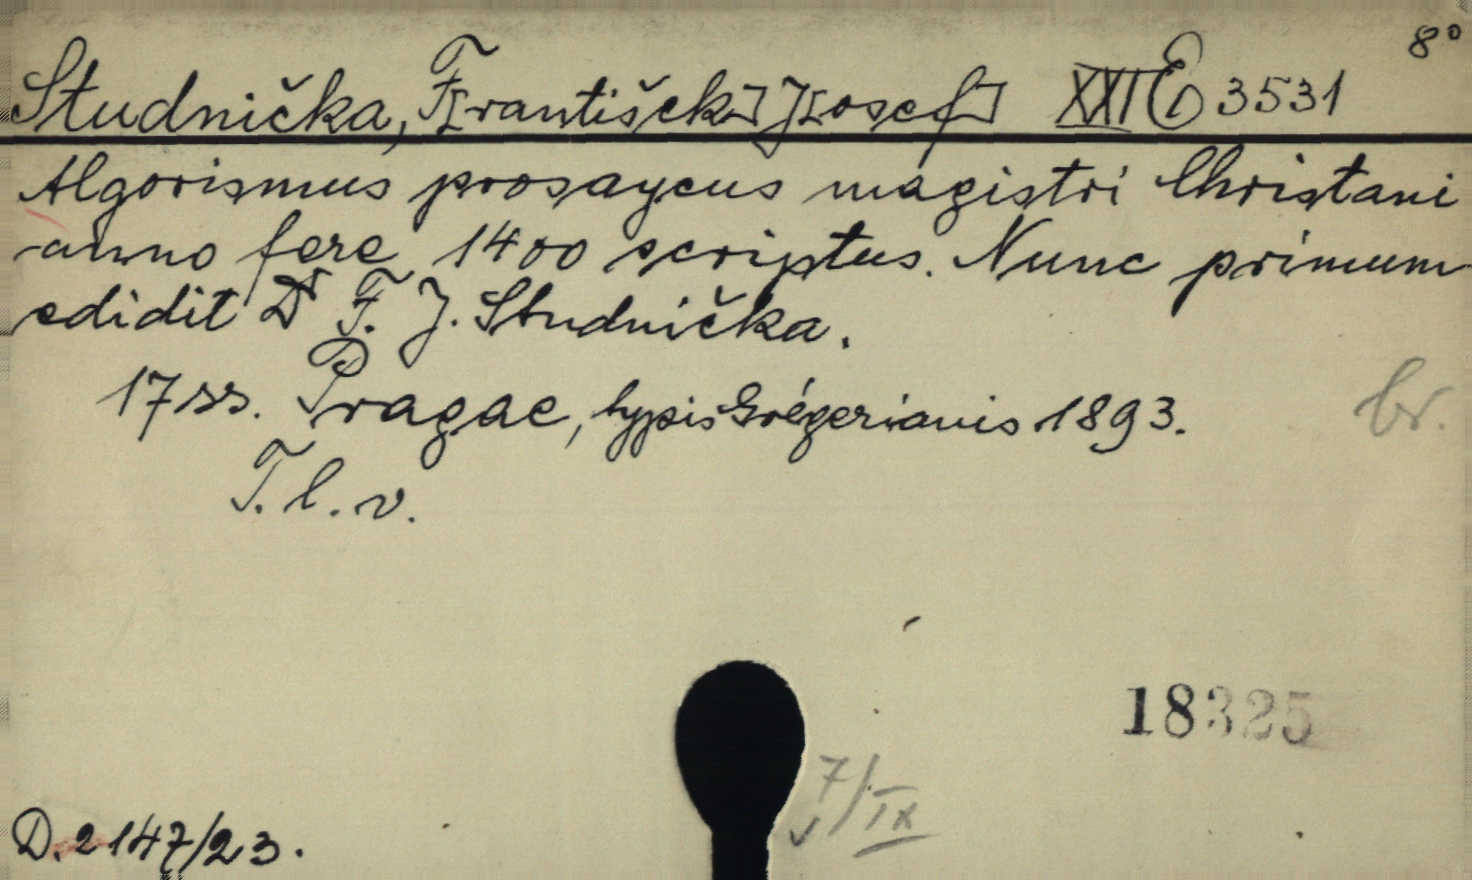 8°
Studnička, F[rantišek] J[osef] XXI E 3531
Algorismus prosaycus magistri Christani
anno fere 1400 scriptus. Nunc primum
edidit Dr F. J. Studnička.
17 ss. Pragae, typis Grégerianis 1893.
br.
T. l. v.
18325
7/IX
D. 2147/23.